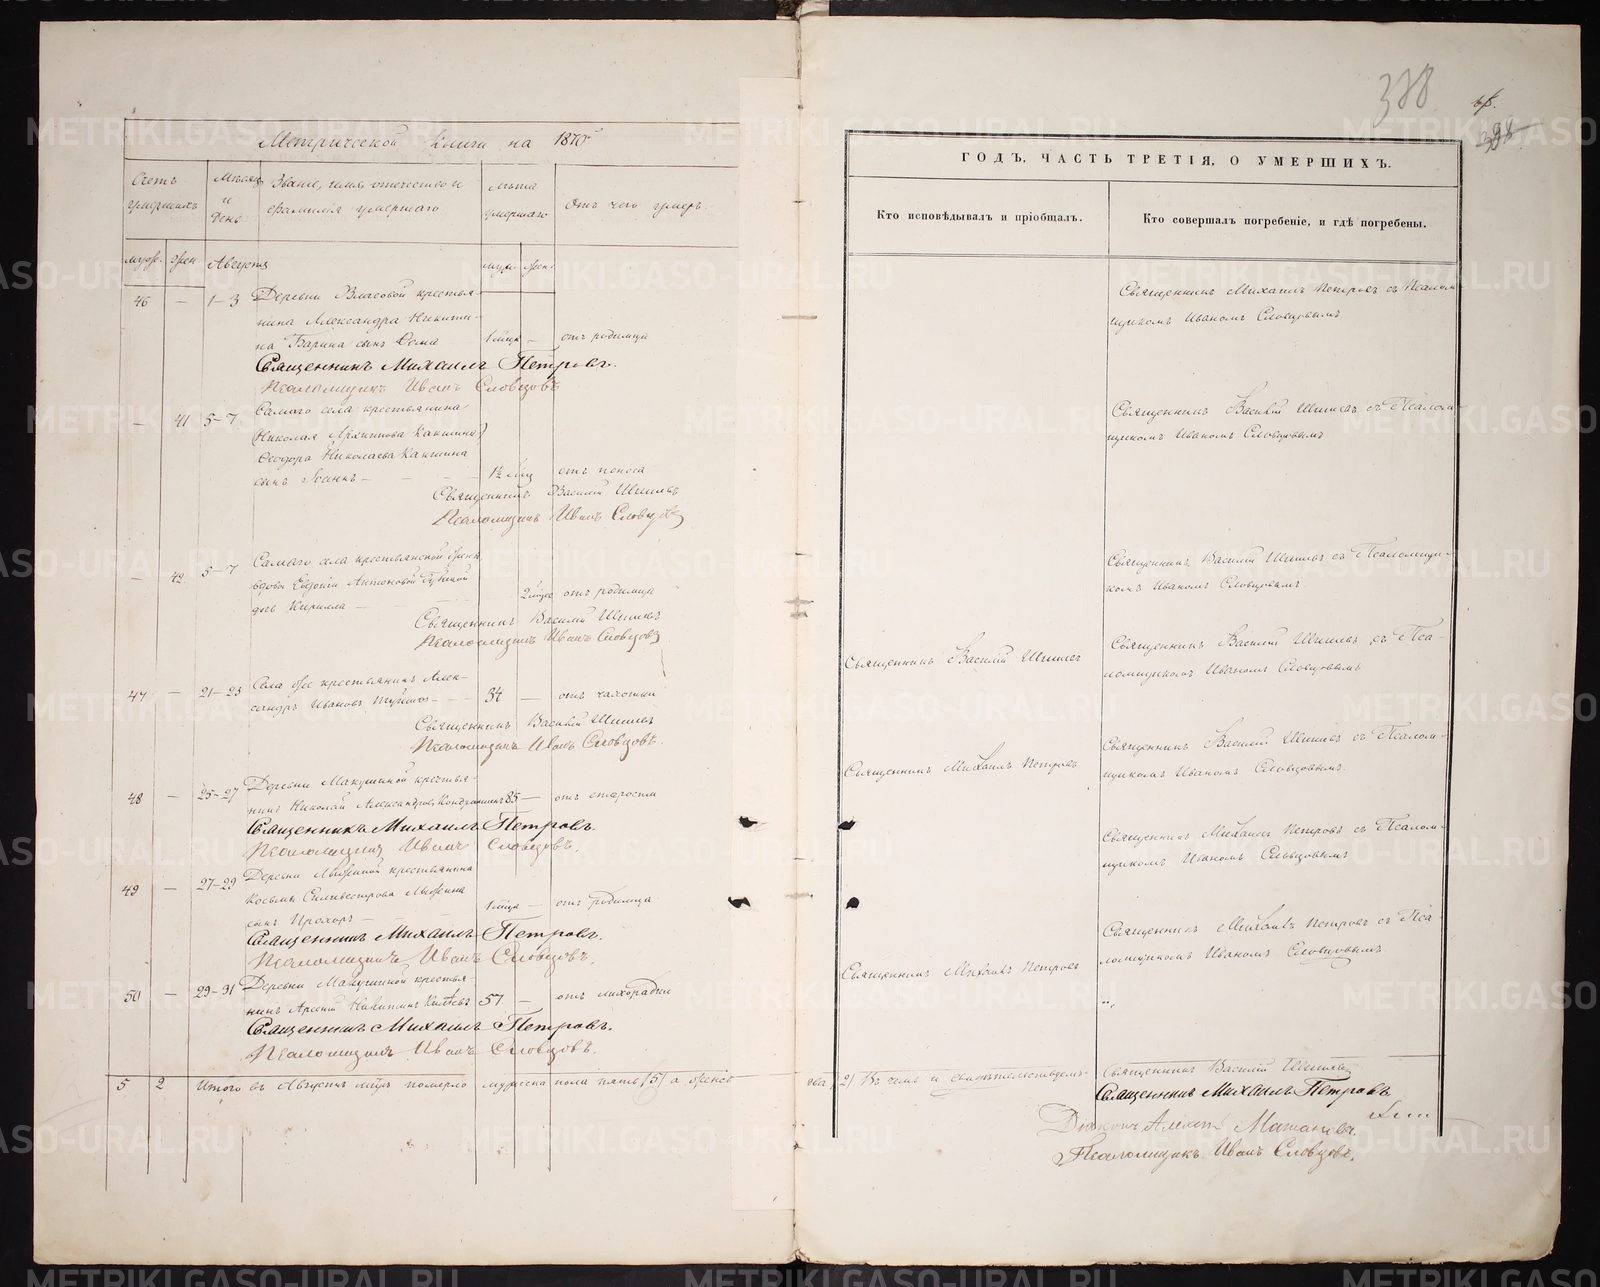 Метрической книги на 1870
Счетъ умершихъ
Мѣсяц и день
Званіе, имя, отчество и фамилія умершаго
Лѣта умершаго
Отъ чего умеръ
муж. жен. Августа муж. жен.
46 — 1–3 Деревни Власовой крестья-
нина Александра Никити-
на Барина сынъ 1 мѣца — отъ родимца
Священникъ Михаилъ Петровъ.
Псаломщикъ Иванъ Словцовъ
— 41 5–7 Самаго села крестьянина
Николая Архипова
Ѳеодора Николаева
сынъ Іоаннъ — 1½ мѣц отъ поноса
Священникъ Василій Шишевъ
Псаломщикъ Иванъ Словцовъ
— 42 5–7 Самаго села крестьянской
вдовы Евдокіи Антоновой
дочь Кирилла — 2 отъ родимца
Священникъ Василій Шишевъ
Псаломщикъ Иванъ Словцовъ
47 — 21–23 Села крестьянинъ Алек-
сандръ Ивановъ 34 — отъ чахотки
Священникъ Василій Шишевъ
Псаломщикъ Иванъ Словцовъ.
48 — 25–27 Деревни Макушиной крестья-
нинъ Николай Александровъ 85 — отъ старости
Священникъ Михаилъ Петровъ.
Псаломщикъ Иванъ Словцовъ.
49 — 27–29 Деревни крестьянина
Косьмы Силивестрова
сынъ Прохоръ — 1 мѣца — отъ родимца
Священникъ Михаилъ Петровъ.
Псаломщикъ Иванъ Словцовъ.
50 — 29–31 Деревни Макушиной крестья-
нинъ Арсеній Никитинъ 57 — отъ лихорадки
Священникъ Михаилъ Петровъ.
Псаломщикъ Иванъ Словцовъ.
5 2 Итого въ Августѣ мѣцѣ померло мужеска пола пять (5) а женск
378
398
ГОДЪ, ЧАСТЬ ТРЕТІЯ, О УМЕРШИХЪ.
Кто исповѣдывалъ и пріобщалъ.
Кто совершалъ погребеніе, и гдѣ погребены.
Священникъ Михаилъ Петровъ съ Псалом
щикомъ Иваномъ Словцовымъ
Священникъ Василій Шишевъ съ Псалом
щикомъ Иваномъ Словцовымъ
Священникъ Василій Шишевъ съ Псаломщи-
комъ Иваномъ Словцовымъ
Священникъ Василій Шишевъ
Священникъ Василій Шишевъ съ Пса-
ломщикомъ Иваномъ Словцовымъ
Священникъ Михаилъ Петровъ
Священникъ Василій Шишевъ съ Псалом-
щикомъ Иваномъ Словцовымъ.
Священникъ Михаилъ Петровъ съ Псалом-
щикомъ Иваномъ Словцовымъ
Священникъ Михаилъ Петровъ
Священникъ Михаилъ Петровъ съ Пса-
ломщикомъ Иваномъ Словцовымъ
2) Въ чемъ и свидѣтельствуемъ.
Священникъ Василій Шишевъ
Священникъ Михаилъ Петровъ
Діаконъ
Псаломщикъ Иванъ Словцовъ.
METRIKI.GASO-URAL.RU